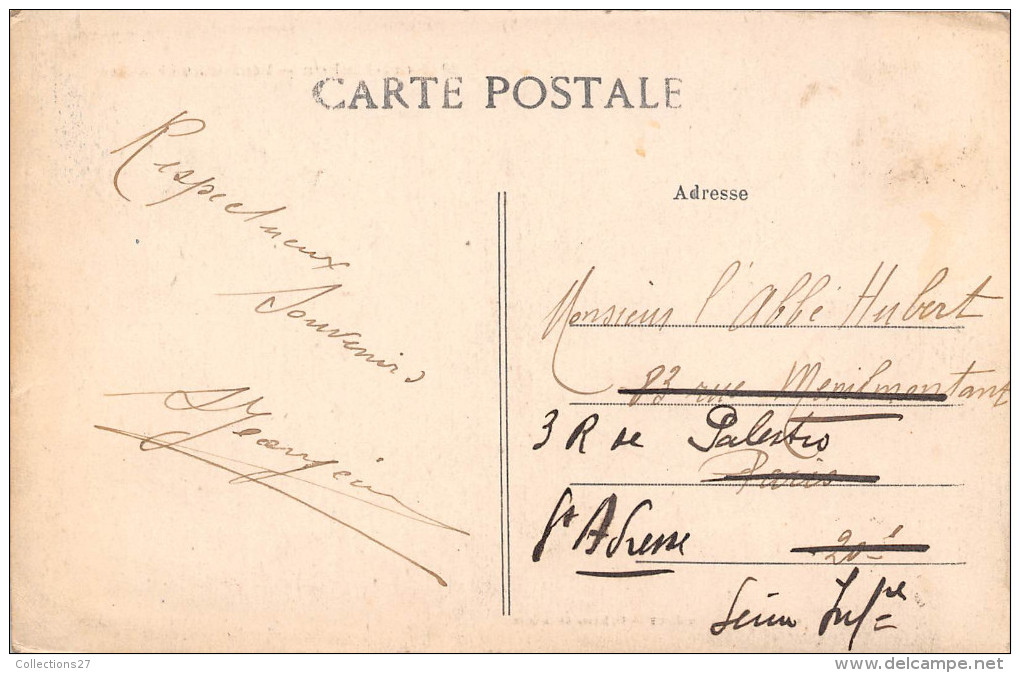 CARTE POSTALE
Respectueux
Souvenirs
Adresse
Monsieur l'Abbé Hubert
83 rue Menilmontant
3 R de Palestro
Paris
Adresse
20è
Seine Infre
Collections27
www.delcampe.net